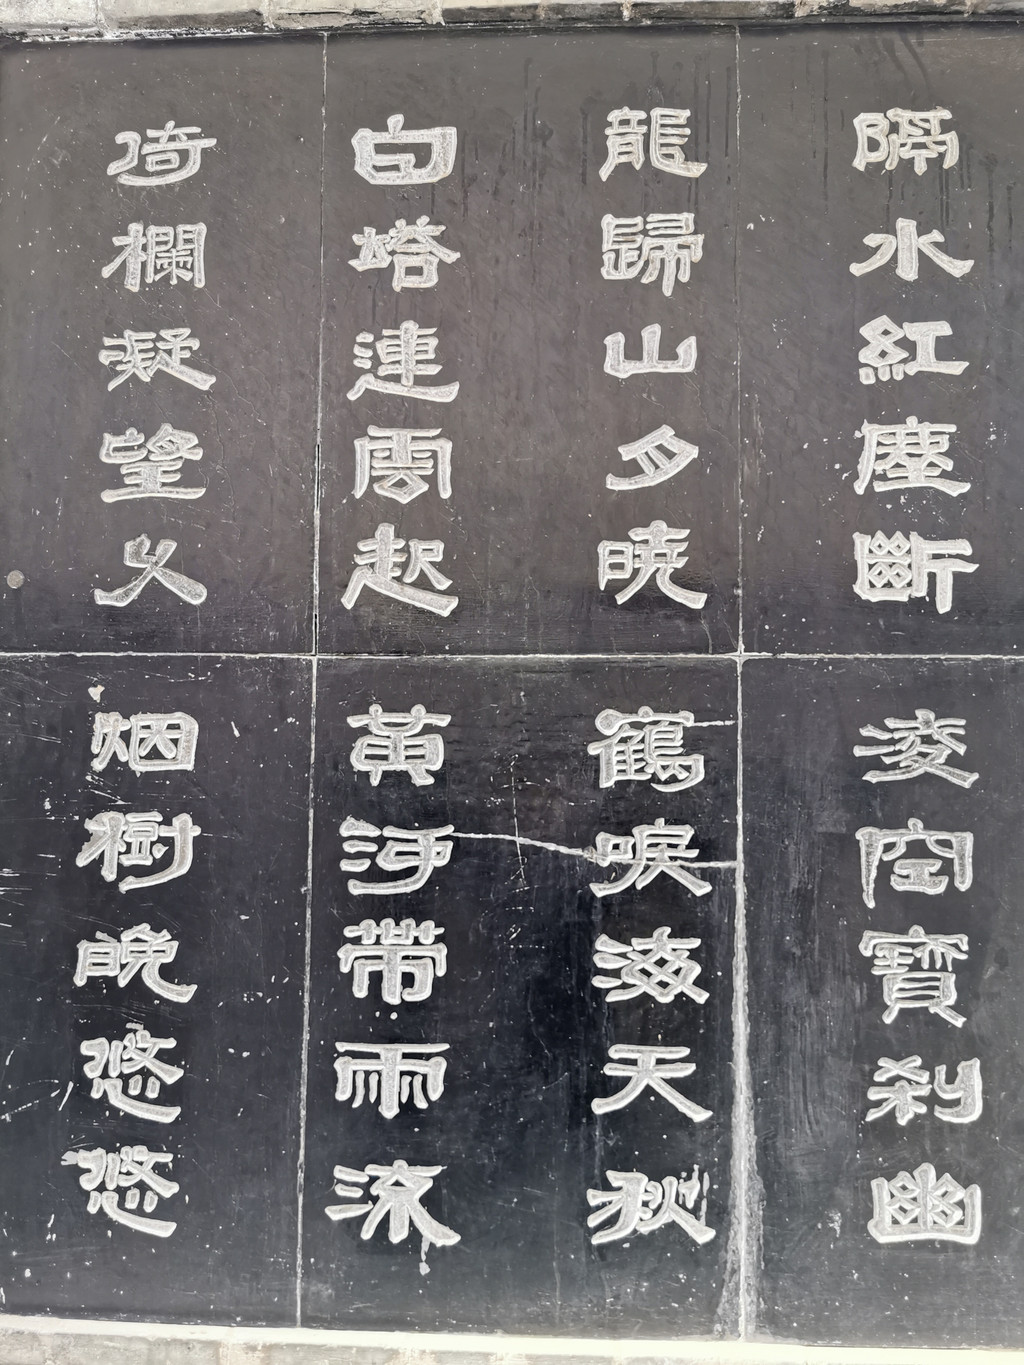 隔水紅塵斷凌空寶刹幽
龍歸山月暁鶴唳海天秋
白塔連雲起黃河帶雨流
倚欄凝望久烟樹晚悠悠